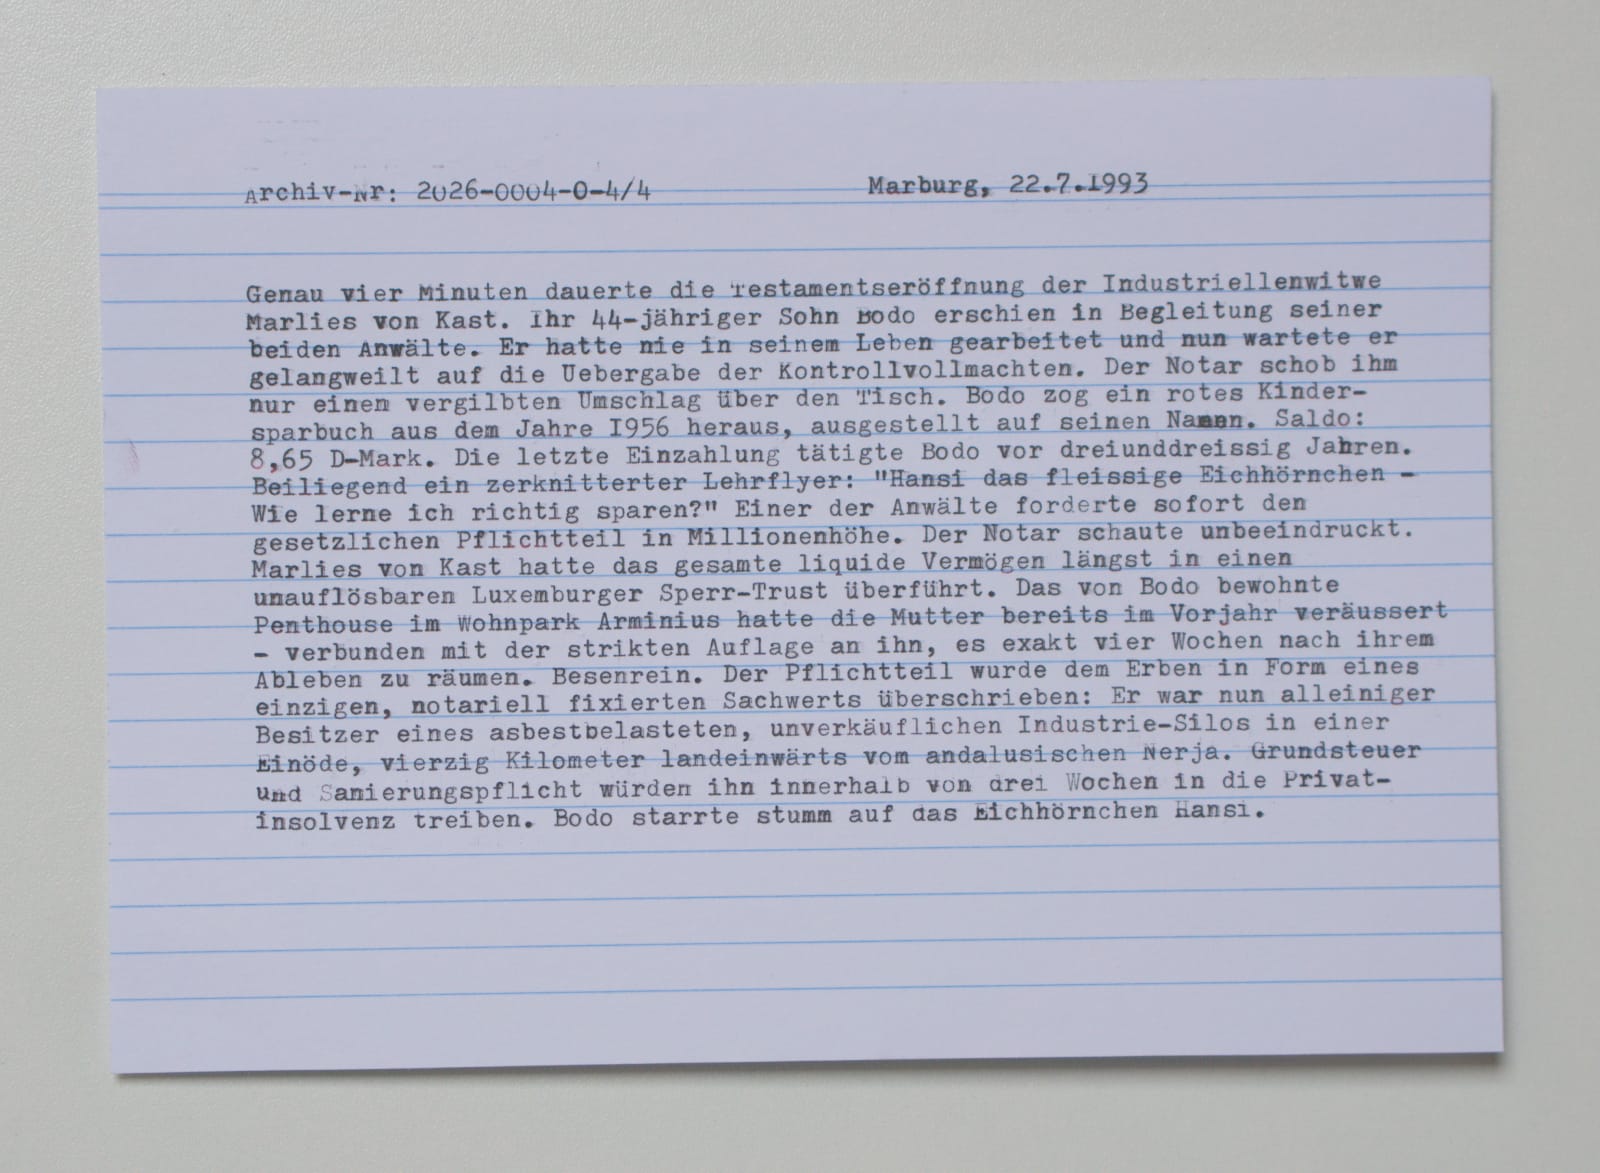 Archiv-Nr: 2026-0004-0-4/4 Marburg, 22.7.1993
Genau vier Minuten dauerte die Testamentseröffnung der Industriellenwitwe
Marlies von Kast. Ihr 44-jähriger Sohn Bodo erschien in Begleitung seiner
beiden Anwälte. Er hatte nie in seinem Leben gearbeitet und nun wartete er
gelangweilt auf die Uebergabe der Kontrollvollmachten. Der Notar schob ihm
nur einen vergilbten Umschlag über den Tisch. Bodo zog ein rotes Kinder-
sparbuch aus dem Jahre I956 heraus, ausgestellt auf seinen Namen. Saldo:
8,65 D-Mark. Die letzte Einzahlung tätigte Bodo vor dreiunddreissig Jahren.
Beiliegend ein zerknitterter Lehrflyer: "Hansi das fleissige Eichhörnchen -
Wie lerne ich richtig sparen?" Einer der Anwälte forderte sofort den
gesetzlichen Pflichtteil in Millionenhöhe. Der Notar schaute unbeeindruckt.
Marlies von Kast hatte das gesamte liquide Vermögen längst in einen
unauflösbaren Luxemburger Sperr-Trust überführt. Das von Bodo bewohnte
Penthouse im Wohnpark Arminius hatte die Mutter bereits im Vorjahr veräussert
- verbunden mit der strikten Auflage an ihn, es exakt vier Wochen nach ihrem
Ableben zu räumen. Besenrein. Der Pflichtteil wurde dem Erben in Form eines
einzigen, notariell fixierten Sachwerts überschrieben: Er war nun alleiniger
Besitzer eines asbestbelasteten, unverkäuflichen Industrie-Silos in einer
Einöde, vierzig Kilometer landeinwärts vom andalusischen Nerja. Grundsteuer
und Sanierungspflicht würden ihn innerhalb von drei Wochen in die Privat-
insolvenz treiben. Bodo starrte stumm auf das Eichhörnchen Hansi.